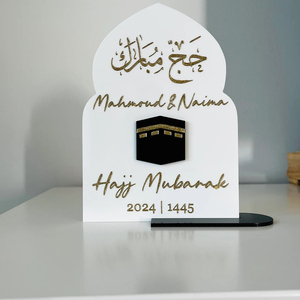 حَجّ مُبَارَك
Mahmoud & Naima
Hajj Mubarak
2024 | 1445